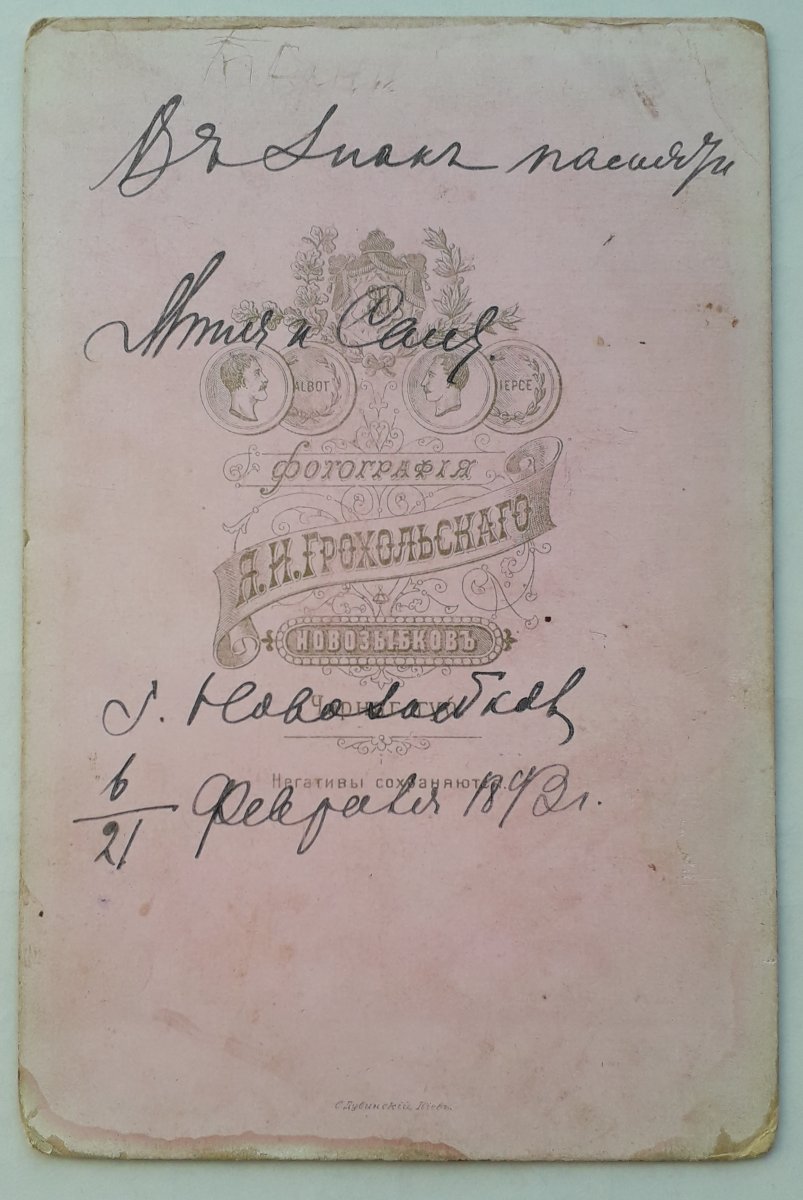 Въ знакъ памяти
Митя и Саня.
ALBOT
IEPCE
ФОТОГРАФІЯ
Я.И.ГРОХОЛЬСКАГО
НОВОЗЫБКОВЪ
Черниг. губ.
г. Новозыбков
Негативы сохраняются.
6/21 Февраля 1893 г.
С. Дубинскій, Кіевъ.